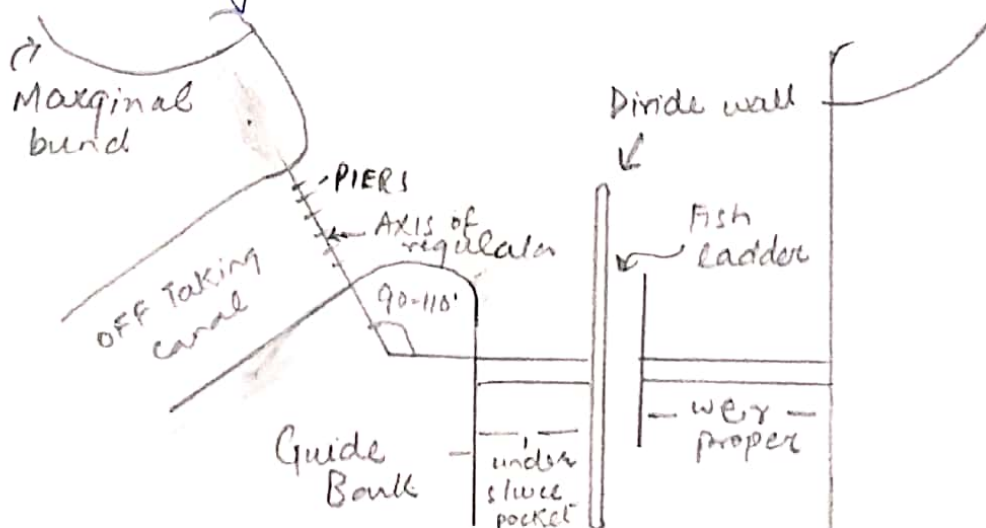 Marginal
bund
Divide wall
PIERS
Axis of
regulator
Fish
ladder
OFF Taking
canal
90-110°
Guide
Bank
under
sluice
pocket
weir
proper